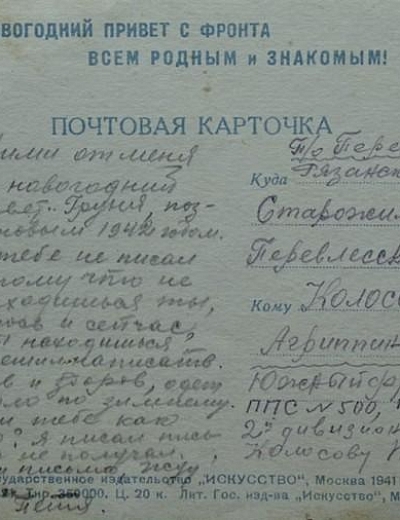 ВОГОДНИЙ ПРИВЕТ С ФРОНТА
ВСЕМ РОДНЫМ и ЗНАКОМЫМ!
ПОЧТОВАЯ КАРТОЧКА
ими от меня
новогодний
вет. Груня, поз-
овым 1942 годом.
тебе не писал
тому что не
ходишься ты,
и сейчас,
находишься,
ешил написать.
в и здоров, одет
ло по зимнему.
и тебе как
? Я писал пись
не получал,
и письма жду
Петя.
п/о Пере
Куда Рязанск
Старожил
Перевлесск
Кому Колосо
Агриппин
Южный фр
ППС № 500,
2й дивизион
Колосову
сударственное издательство „ИСКУССТВО", Москва 1941
Тир. 350000. Ц. 20 к. Лит. Гос. изд-ва „Искусство",